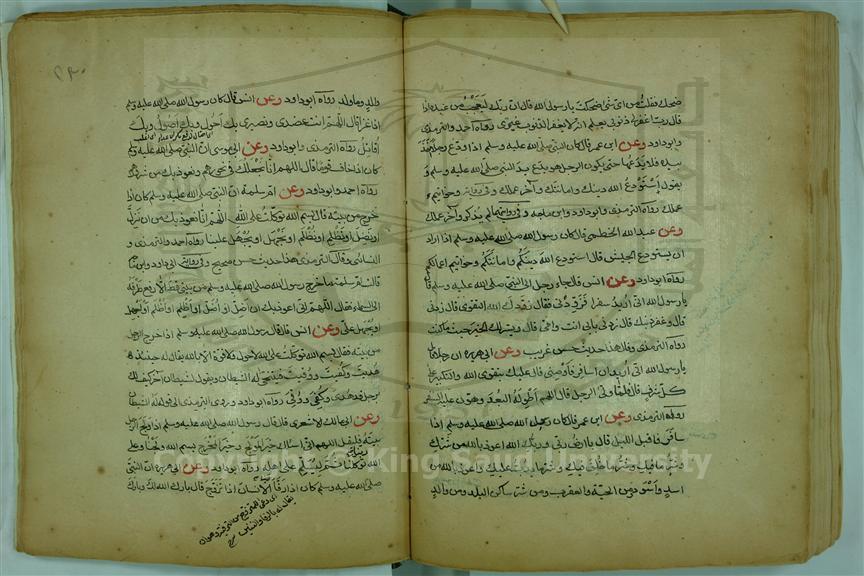 ضحك فقلت من اى شئ ضحكت يا رسول الله قال ان ربك ليعجب من عبده اذا
قال رب اغفر لى ذنوبى يعلم انه لا يغفر الذنوب غيرى رواه احمد والترمذى
وابو داود وعن ابن عمر قال كان النبى صلى الله عليه وسلم اذا ودع رجلا اخذ
بيده فلا يدعها حتى يكون الرجل هو يدع يد النبى صلى الله عليه وسلم و
يقول استودع الله دينك وامانتك وآخر عملك وفى رواية وخواتيم
عملك رواه الترمذى وابو داود وابن ماجه وفى روايتهما لم يذكر وآخر عملك
وعن عبد الله الخطمى قال كان رسول الله صلى الله عليه وسلم اذا اراد
ان يستودع الجيش قال استودع الله دينكم وامانتكم وخواتيم اعمالكم
رواه ابو داود وعن انس قال جاء رجل الى النبى صلى الله عليه وسلم قال
يا رسول الله انى اريد سفرا فزودنى فقال زودك الله التقوى قال زدنى
قال وغفر ذنبك قال زدنى بابى انت وامى قال ويسر لك الخير حيث ما كنت
رواه الترمذى وقال هذا حديث حسن غريب وعن ابى هريرة ان رجلا قال
يا رسول الله انى اريد ان اسافر فاوصنى قال عليك بتقوى الله والتكبير على
كل شرف قال فلما ولى الرجل قال اللهم اطو له البعد وهون عليه السفر
رواه الترمذى وعن ابن عمر قال كان رسول الله صلى الله عليه وسلم اذا
سافر فاقبل الليل قال يا ارض ربى وربك الله اعوذ بالله من شرك
وشر ما فيك وشر ما خلق فيك وشر ما يدب عليك واعوذ بالله من
اسد واسود ومن الحية والعقرب ومن شر ساكن البلد ومن والد
والد وما ولد رواه ابو داود وعن انس قال كان رسول الله صلى الله عليه وسلم
اذا غزا قال اللهم انت عضدى ونصيرى بك احول وبك اصول وبك
اقاتل رواه الترمذى وابو داود وعن ابى موسى ان النبى صلى الله عليه وسلم
كان اذا خاف قوما قال اللهم انا نجعلك فى نحورهم ونعوذ بك من شرورهم
رواه احمد وابو داود وعن ام سلمة ان النبى صلى الله عليه وسلم كان اذا
خرج من بيته قال بسم الله توكلت على الله اللهم انا نعوذ بك من ان نزل
او نضل او نظلم او نظلم او نجهل او يجهل علينا رواه احمد والترمذى و
النسائى وقال الترمذى هذا حديث حسن صحيح وفى رواية ابى داود وابن ماجه
قالت ام سلمة ما خرج رسول الله صلى الله عليه وسلم من بيتى قط الا رفع طرفه
الى السماء فقال اللهم انى اعوذ بك ان اضل او اضل او اظلم او اظلم او اجهل
او يجهل على وعن انس قال قال رسول الله صلى الله عليه وسلم اذا خرج الرجل
من بيته فقال بسم الله توكلت على الله لا حول ولا قوة الا بالله يقال له حينئذ
هديت وكفيت ووقيت فيتنحى له الشيطان ويقول لشيطان آخر كيف لك
برجل قد هدى وكفى ووقى رواه ابو داود وروى الترمذى الى قوله له الشيطان
وعن ابى مالك الاشعرى قال قال رسول الله صلى الله عليه وسلم اذا ولج الرجل
بيته فليقل اللهم انى اسألك خير المولج وخير المخرج بسم الله ولجنا وعلى
الله ربنا توكلنا ثم ليسلم على اهله رواه ابو داود وعن ابى هريرة ان النبى
صلى الله عليه وسلم كان اذا رفأ الانسان اذا تزوج قال بارك الله لك وبارك
Copyright © King Saud University
1957